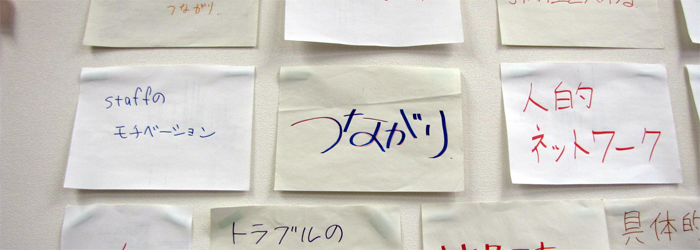 つながり
staffの
モチベーション
つながり
人的
ネットワーク
トラブルの
具体的